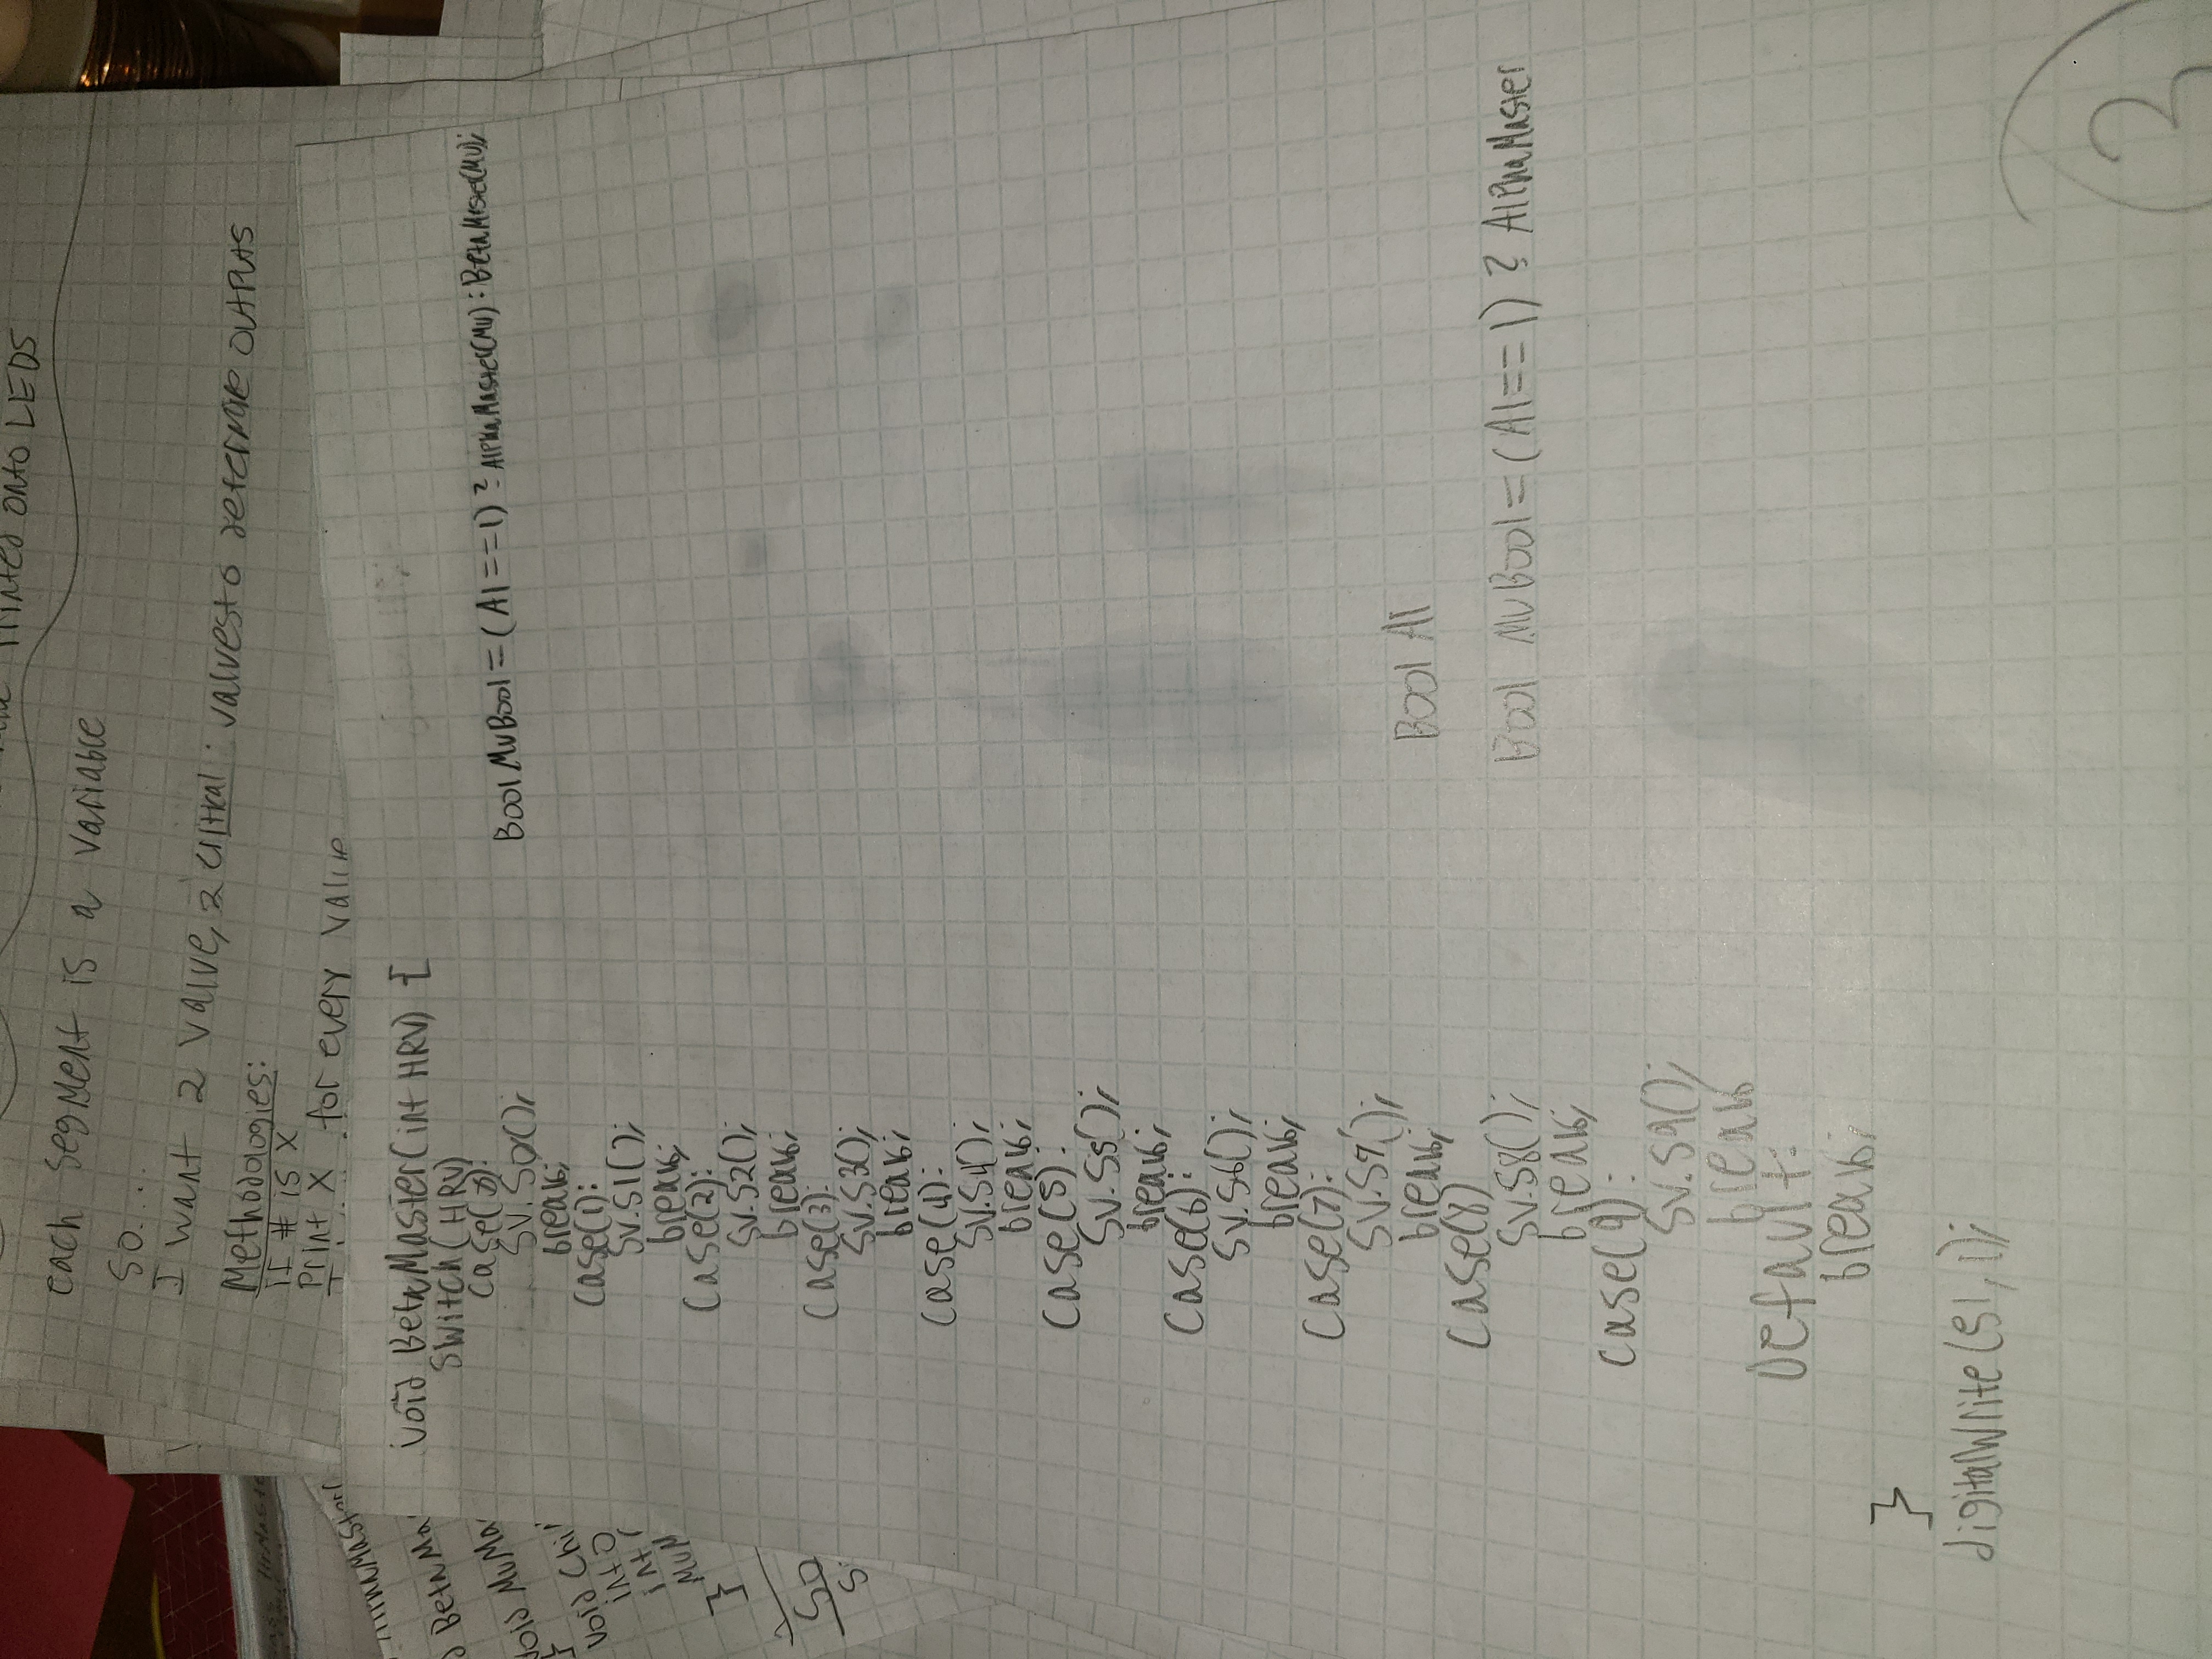 Printed onto LEDS
each segment is a variable
So....
I want 2 value, 2 critical : values to determine outputs
Methodologies:
if # is X
Print X for every value
AlphaMaster
BetaMa
Void MuMa
}
Void Chi
int
int
MuM
}
So
S
void BetaMaster(int HRV) {
Switch(HRV)
Case(0):
SV.S0();
break;
Case(1):
SV.S1();
break;
Case(2):
SV.S2();
break;
Case(3):
SV.S3();
break;
Case(4):
SV.S4();
break;
Case(5):
SV.S5();
break;
Case(6):
SV.S6();
break;
Case(7):
SV.S7();
break;
Case(8)
SV.S8();
break;
Case(9):
SV.S9();
break
Default:
break;
}
digitalWrite(S1, 1);
Bool MuBool = (A1==1) ? AlphaMaster(Mu) : BetaMaster(Mu);
Bool A1
Bool MuBool = (A1==1) ? AlphaMaster
3